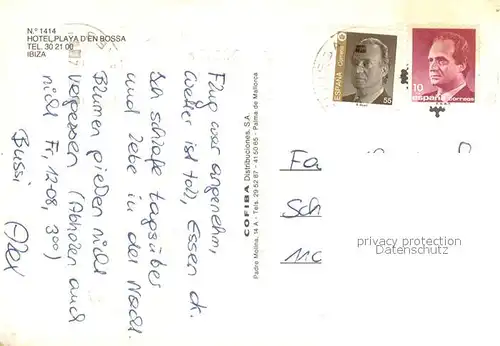 N.º 1414
HOTEL PLAYA D'EN BOSSA
TEL. 30 21 00
IBIZA
Flug war angenehm,
Wetter ist toll, Essen ok.
Ich schlafe tagsüber
und lebe in der Nacht.
Blumen gießen nicht
vergessen (Abholen auch
nicht Fr, 12.08, 300)
Bussi
Alex
COFIBA Distribuciones, S.A.
Padre Molina, 14 A - Tels. 29 52 87 - 41 50 65 - Palma de Mallorca
ESPAÑA Correos
55
10
españa correos
Fa
Sch
privacy protection
Datenschutz